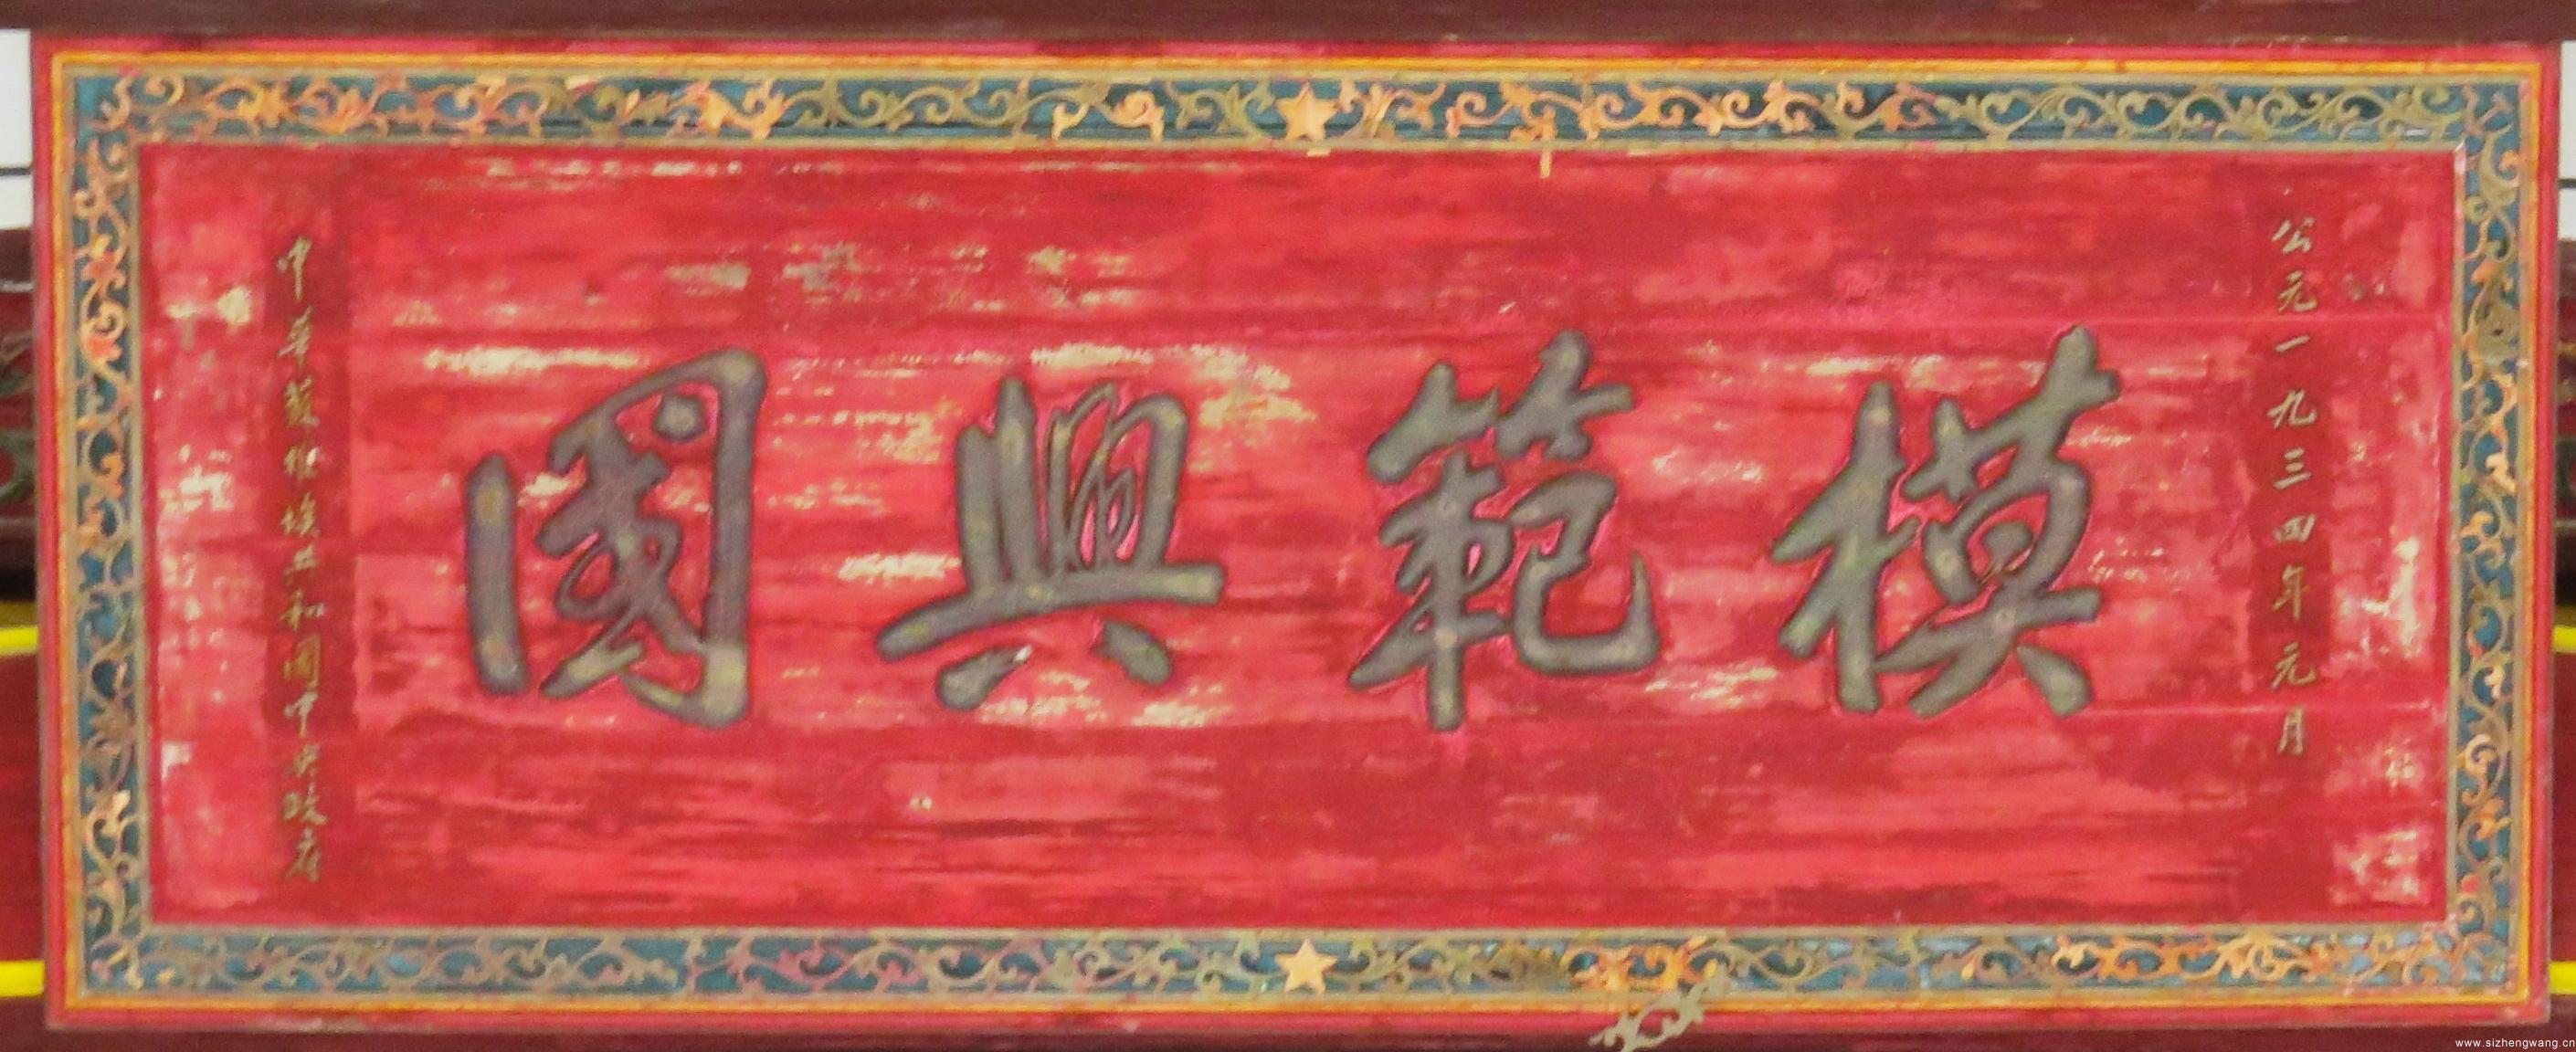 公元一九三四年元月
模範興國
中華蘇維埃共和國中央政府
www.sizhengwang.cn